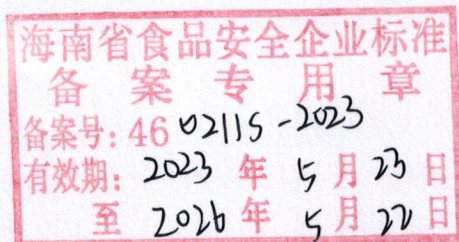 海南省食品安全企业标准
备案专用章
备案号：46 0211S-2023
有效期：2023年5月23日
至2026年5月22日